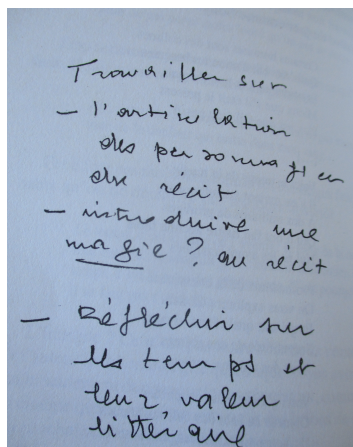 Travailler sur
- l'articulation
des personnages
du récit
- introduire une
magie ? au récit
- Réfléchir sur
les temps et
leur valeur
littéraire